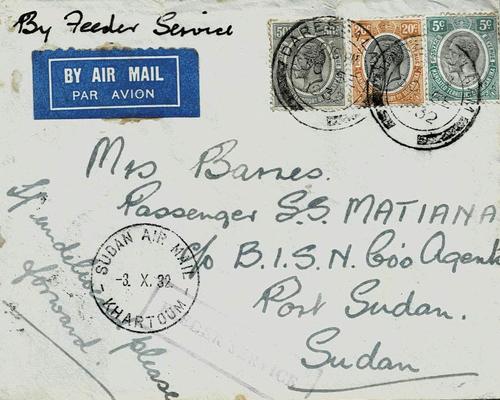 By Feeder Service
BY AIR MAIL
PAR AVION
20c
5c
5c
32
Mrs Barnes.
Passenger S.S. MATIANA
c/o B.I.S.N. Co's Agents
Port Sudan.
Sudan
SUDAN AIR MAIL
-3. X. 32
KHARTOUM
SERVICE
If undelivered please
forward